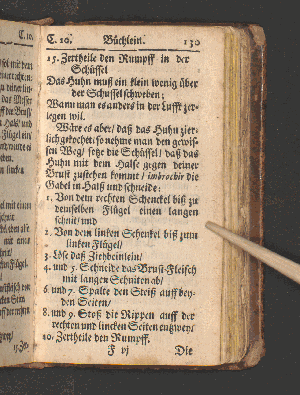 C. 10. Büchlein. 130
15. Zertheile den Rumpff in der
Schüssel
Das Huhn muß ein klein wenig über
der Schussel schweben;
Wann man es anders in der Lufft zer-
legen wil.
Wäre es aber/ daß das Huhn zier-
lich gekochet; so nehme man den gewis-
sen Weg/ setze die Schüssel/ daß das
Huhn mit dem Halse gegen deiner
Brust zustehen kommt/ imbrochir die
Gabel in Halß und schneide:
1. Von dem rechten Schenckel biß zu
demselben Flügel einen langen
schnitt/ und
2. Von dem lincken Schenkel biß zum
lincken Flügel/
3. Löse daß Ziehbeinlein/
4. und 5. Schneide das Brust-Fleisch
mit langen Schniten ab/
6. und 7. Spalte den Steiß auff bey-
den Seiten/
8. und 9. Stoß die Rippen auff der
rechten und lincken Seiten entzwey/
10. Zertheile den Rumpff.
F vj Die